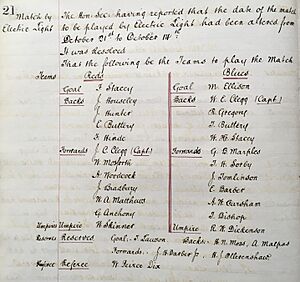 21
Match by
Electric Light
The Hon. Sec. having reported that the date of the match
to be played by Electric Light had been altered from
October 21st to October 14th.
It was resolved
That the following be the Teams to play the Match
Teams Reds Blues
Goal F Stacey Goal M. Ellison
Backs J Housley Backs W. E. Clegg (Capt)
J Hunter R. Gregory
E Buttery T. Buttery
F Hinde W. H. Stacey
Forwards J. C. Clegg (Capt) Forwards G. B. Marples
W. Mosforth T. H. Sorby
A Woodcock J. Tomlinson
J Bradbury C. Barber
W. A. Matthews A. W. Carsham
G. Anthony T. Bishop
Umpires Umpire W Skinner Umpire R. W. Dickenson
Reserves Reserves Goal: T Lawson Backs: H. N. Moss, A. Malpas
Forwards: J. H. Barber Jr. H. J. Ollerenshaw
Referee Referee W. Peirce Dix